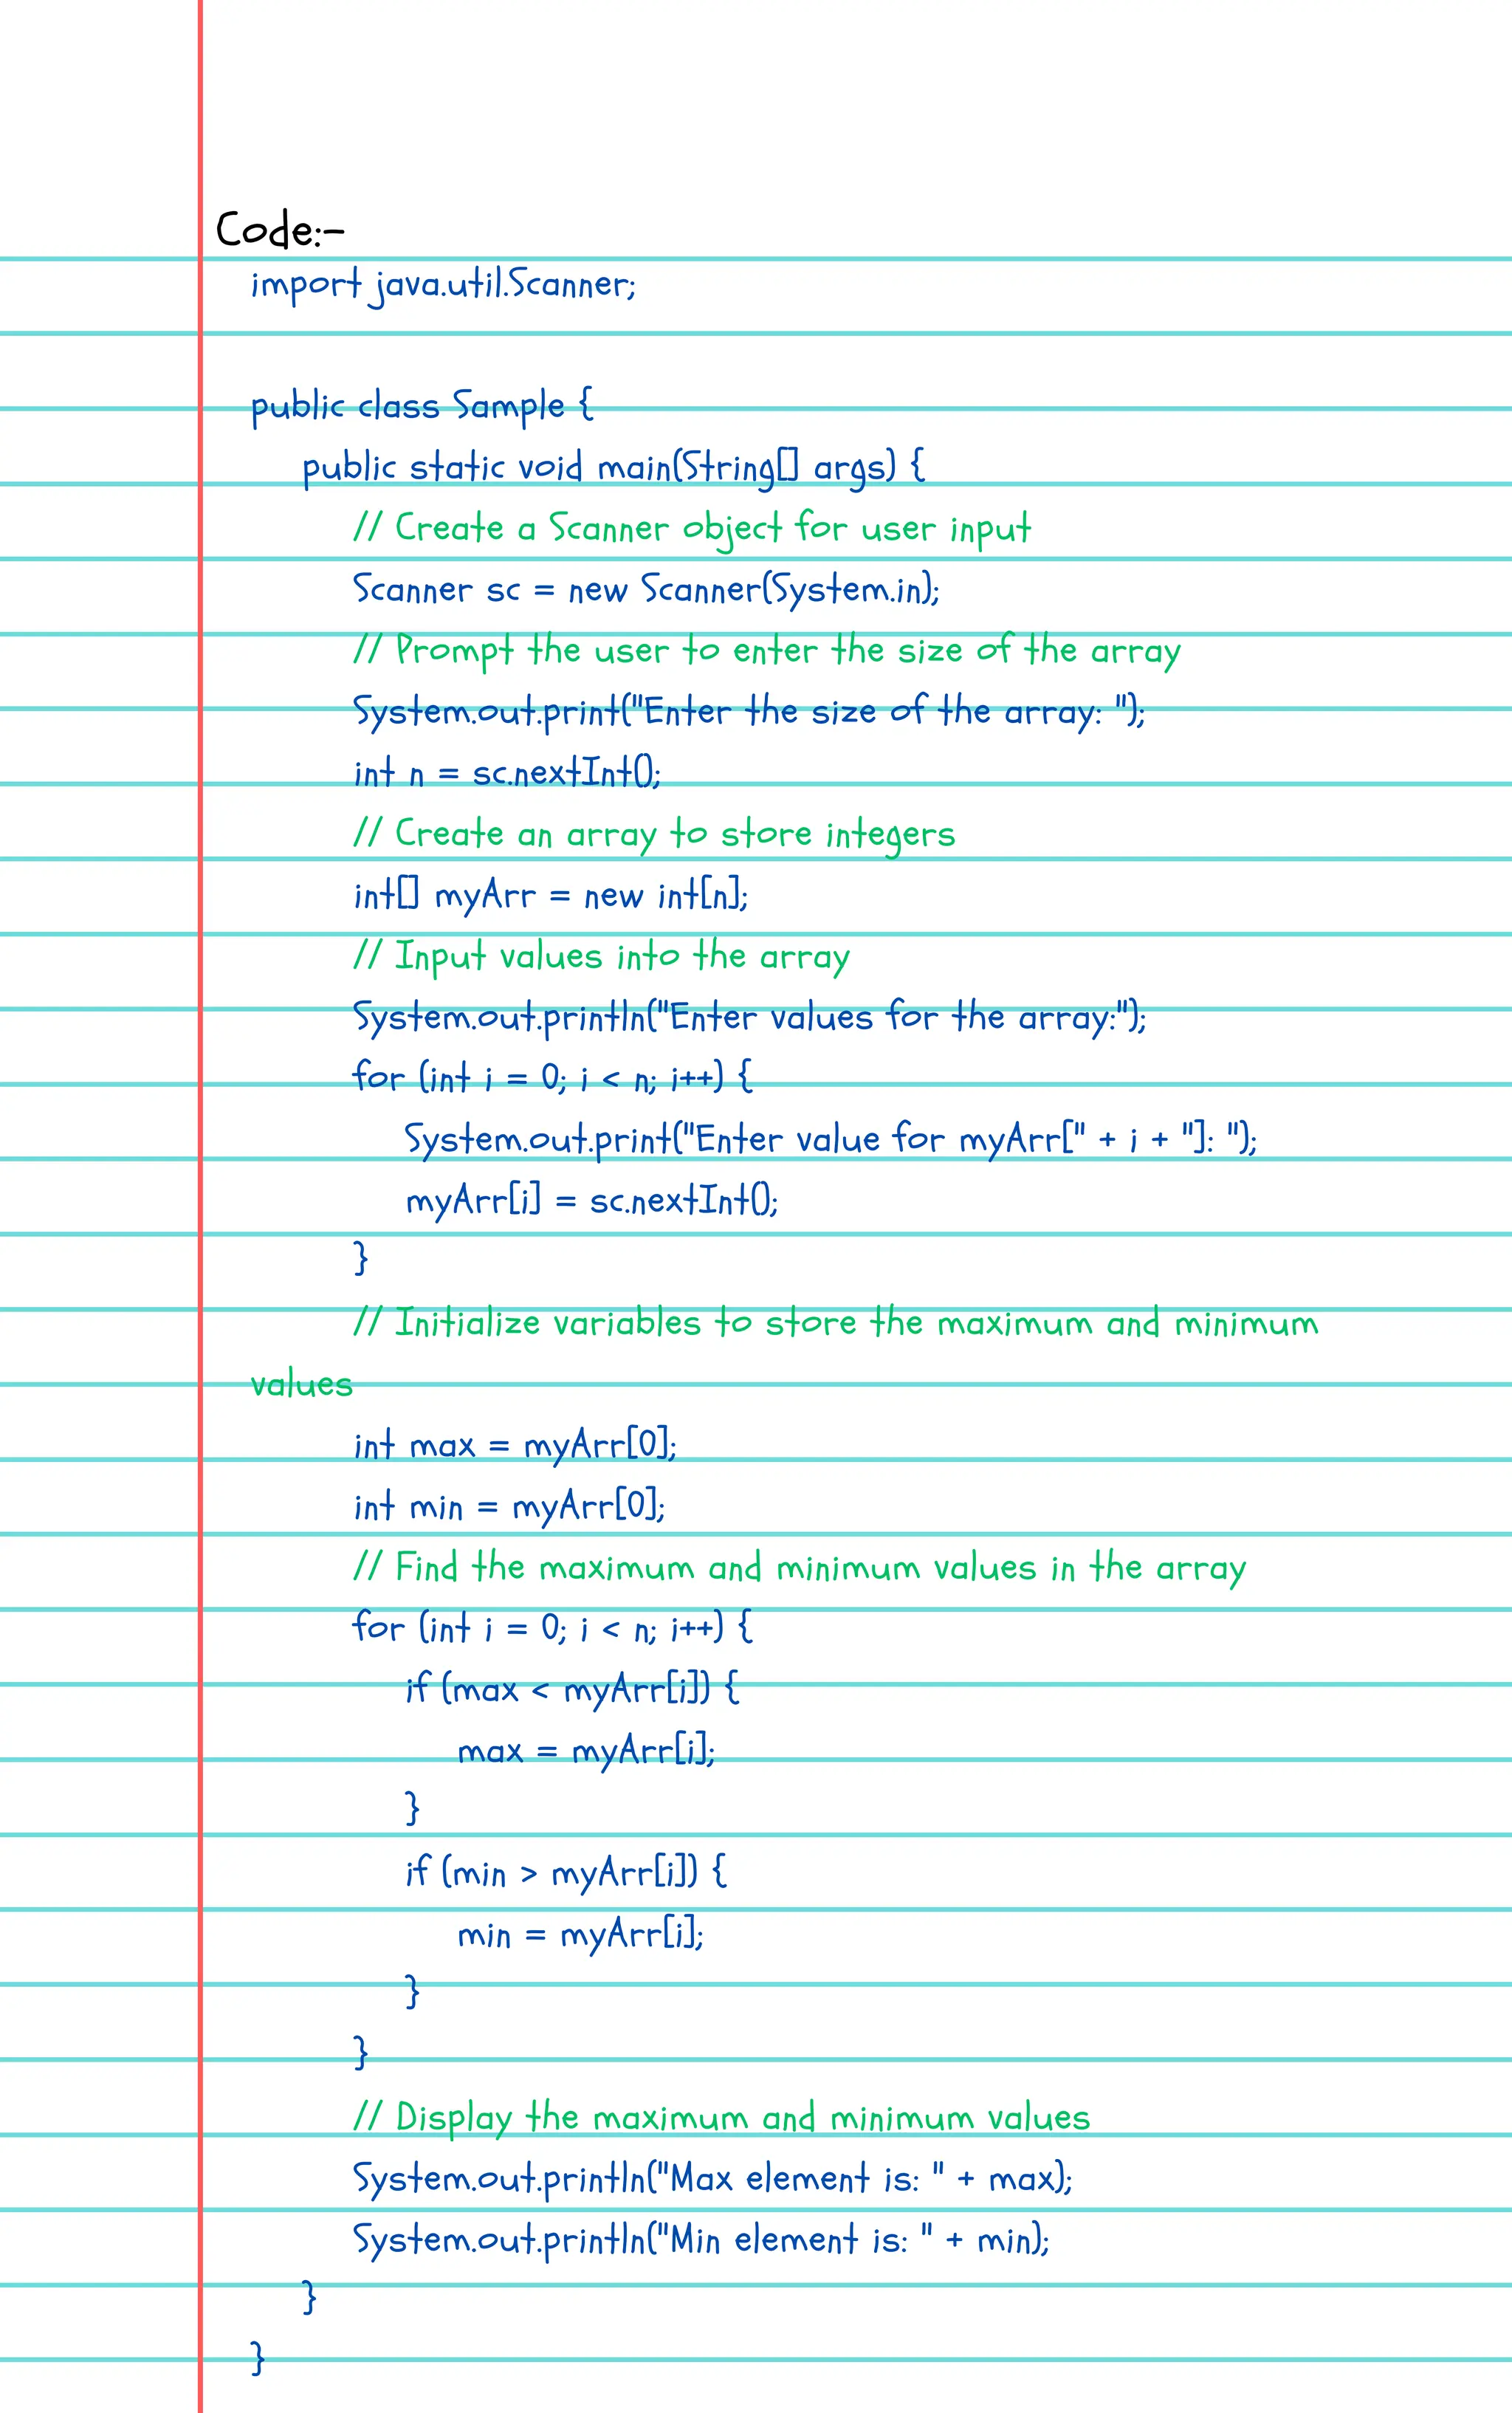 Code:-
import java.util.Scanner;
public class Sample {
public static void main(String[] args) {
// Create a Scanner object for user input
Scanner sc = new Scanner(System.in);
// Prompt the user to enter the size of the array
System.out.print("Enter the size of the array: ");
int n = sc.nextInt();
// Create an array to store integers
int[] myArr = new int[n];
// Input values into the array
System.out.println("Enter values for the array:");
for (int i = 0; i < n; i++) {
System.out.print("Enter value for myArr[" + i + "]: ");
myArr[i] = sc.nextInt();
}
// Initialize variables to store the maximum and minimum
values
int max = myArr[0];
int min = myArr[0];
// Find the maximum and minimum values in the array
for (int i = 0; i < n; i++) {
if (max < myArr[i]) {
max = myArr[i];
}
if (min > myArr[i]) {
min = myArr[i];
}
}
// Display the maximum and minimum values
System.out.println("Max element is: " + max);
System.out.println("Min element is: " + min);
}
}